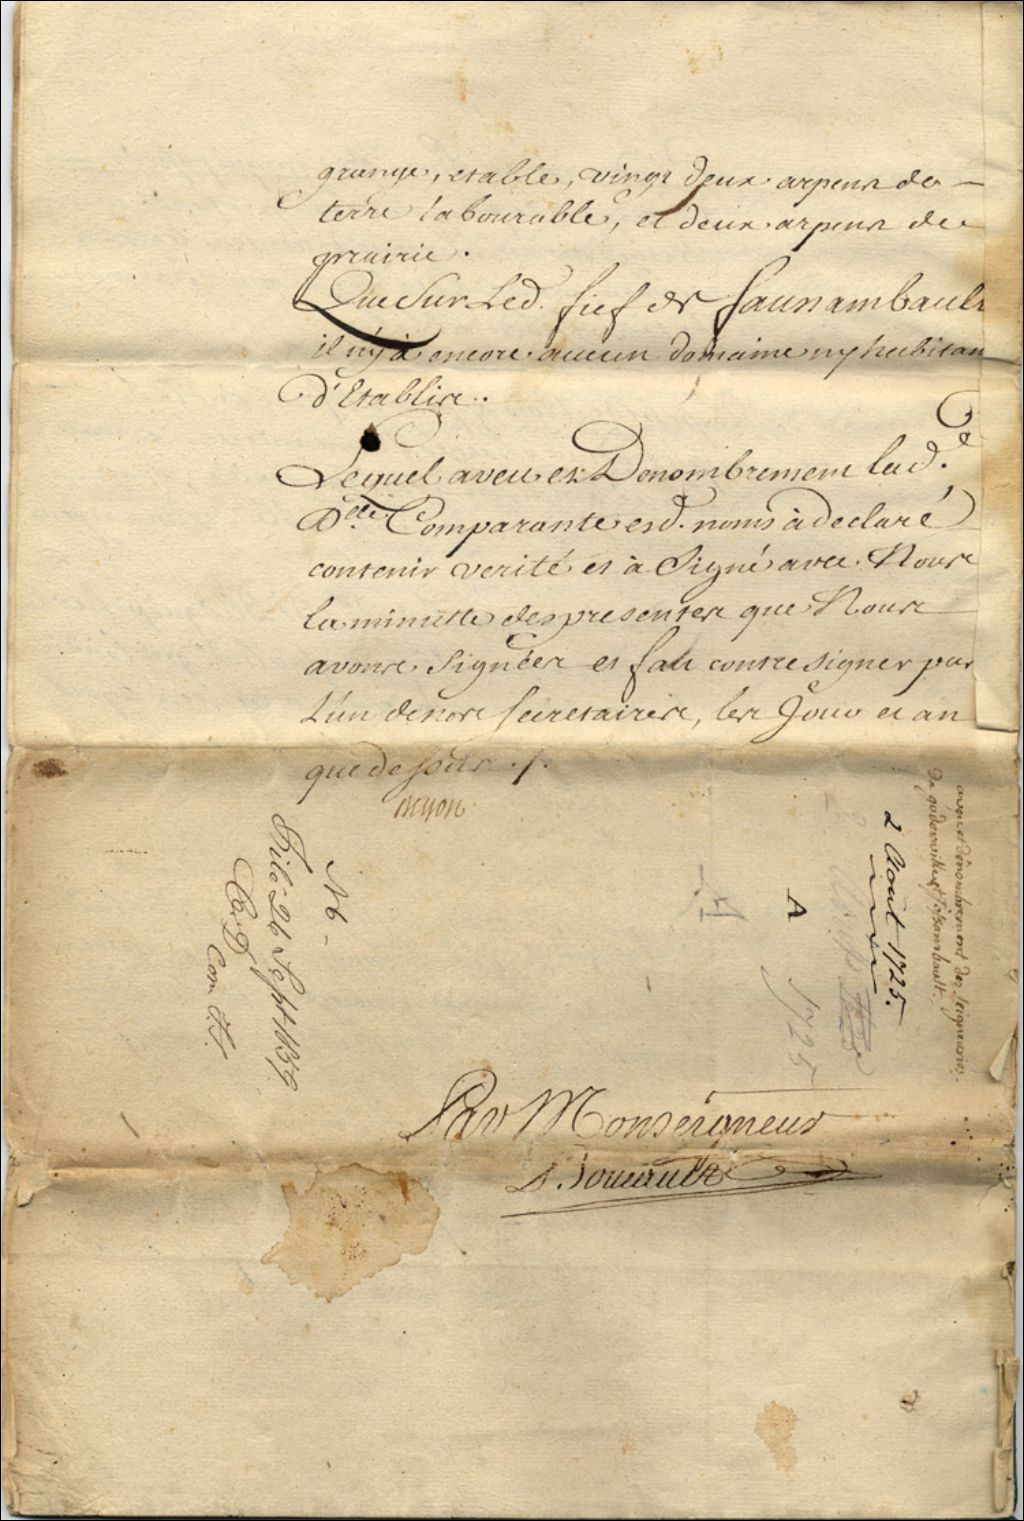 grange, etable, vingt deux arpens de —
terre labourable, et deux arpens de
prairie.
Que Sur Led. fief de faunambault
il n'y à encore aucun domaine ny habitan
d'Etablis.
Lequel aveu et Denombrement lad.e
D.elle Comparante esd. noms à declaré
contenir verité et à Signé avec Nous
la minutte des presentes que Nous
avons Signées et fait contresigner par
L'un de nos secretaires, les Jour et an
que dessus ./.
Par Monseigneur
aveu et dénombrement des seigneuries
2 Août 1725.
A
1725
N6 –
File 26 Sept 1854
Com. S.